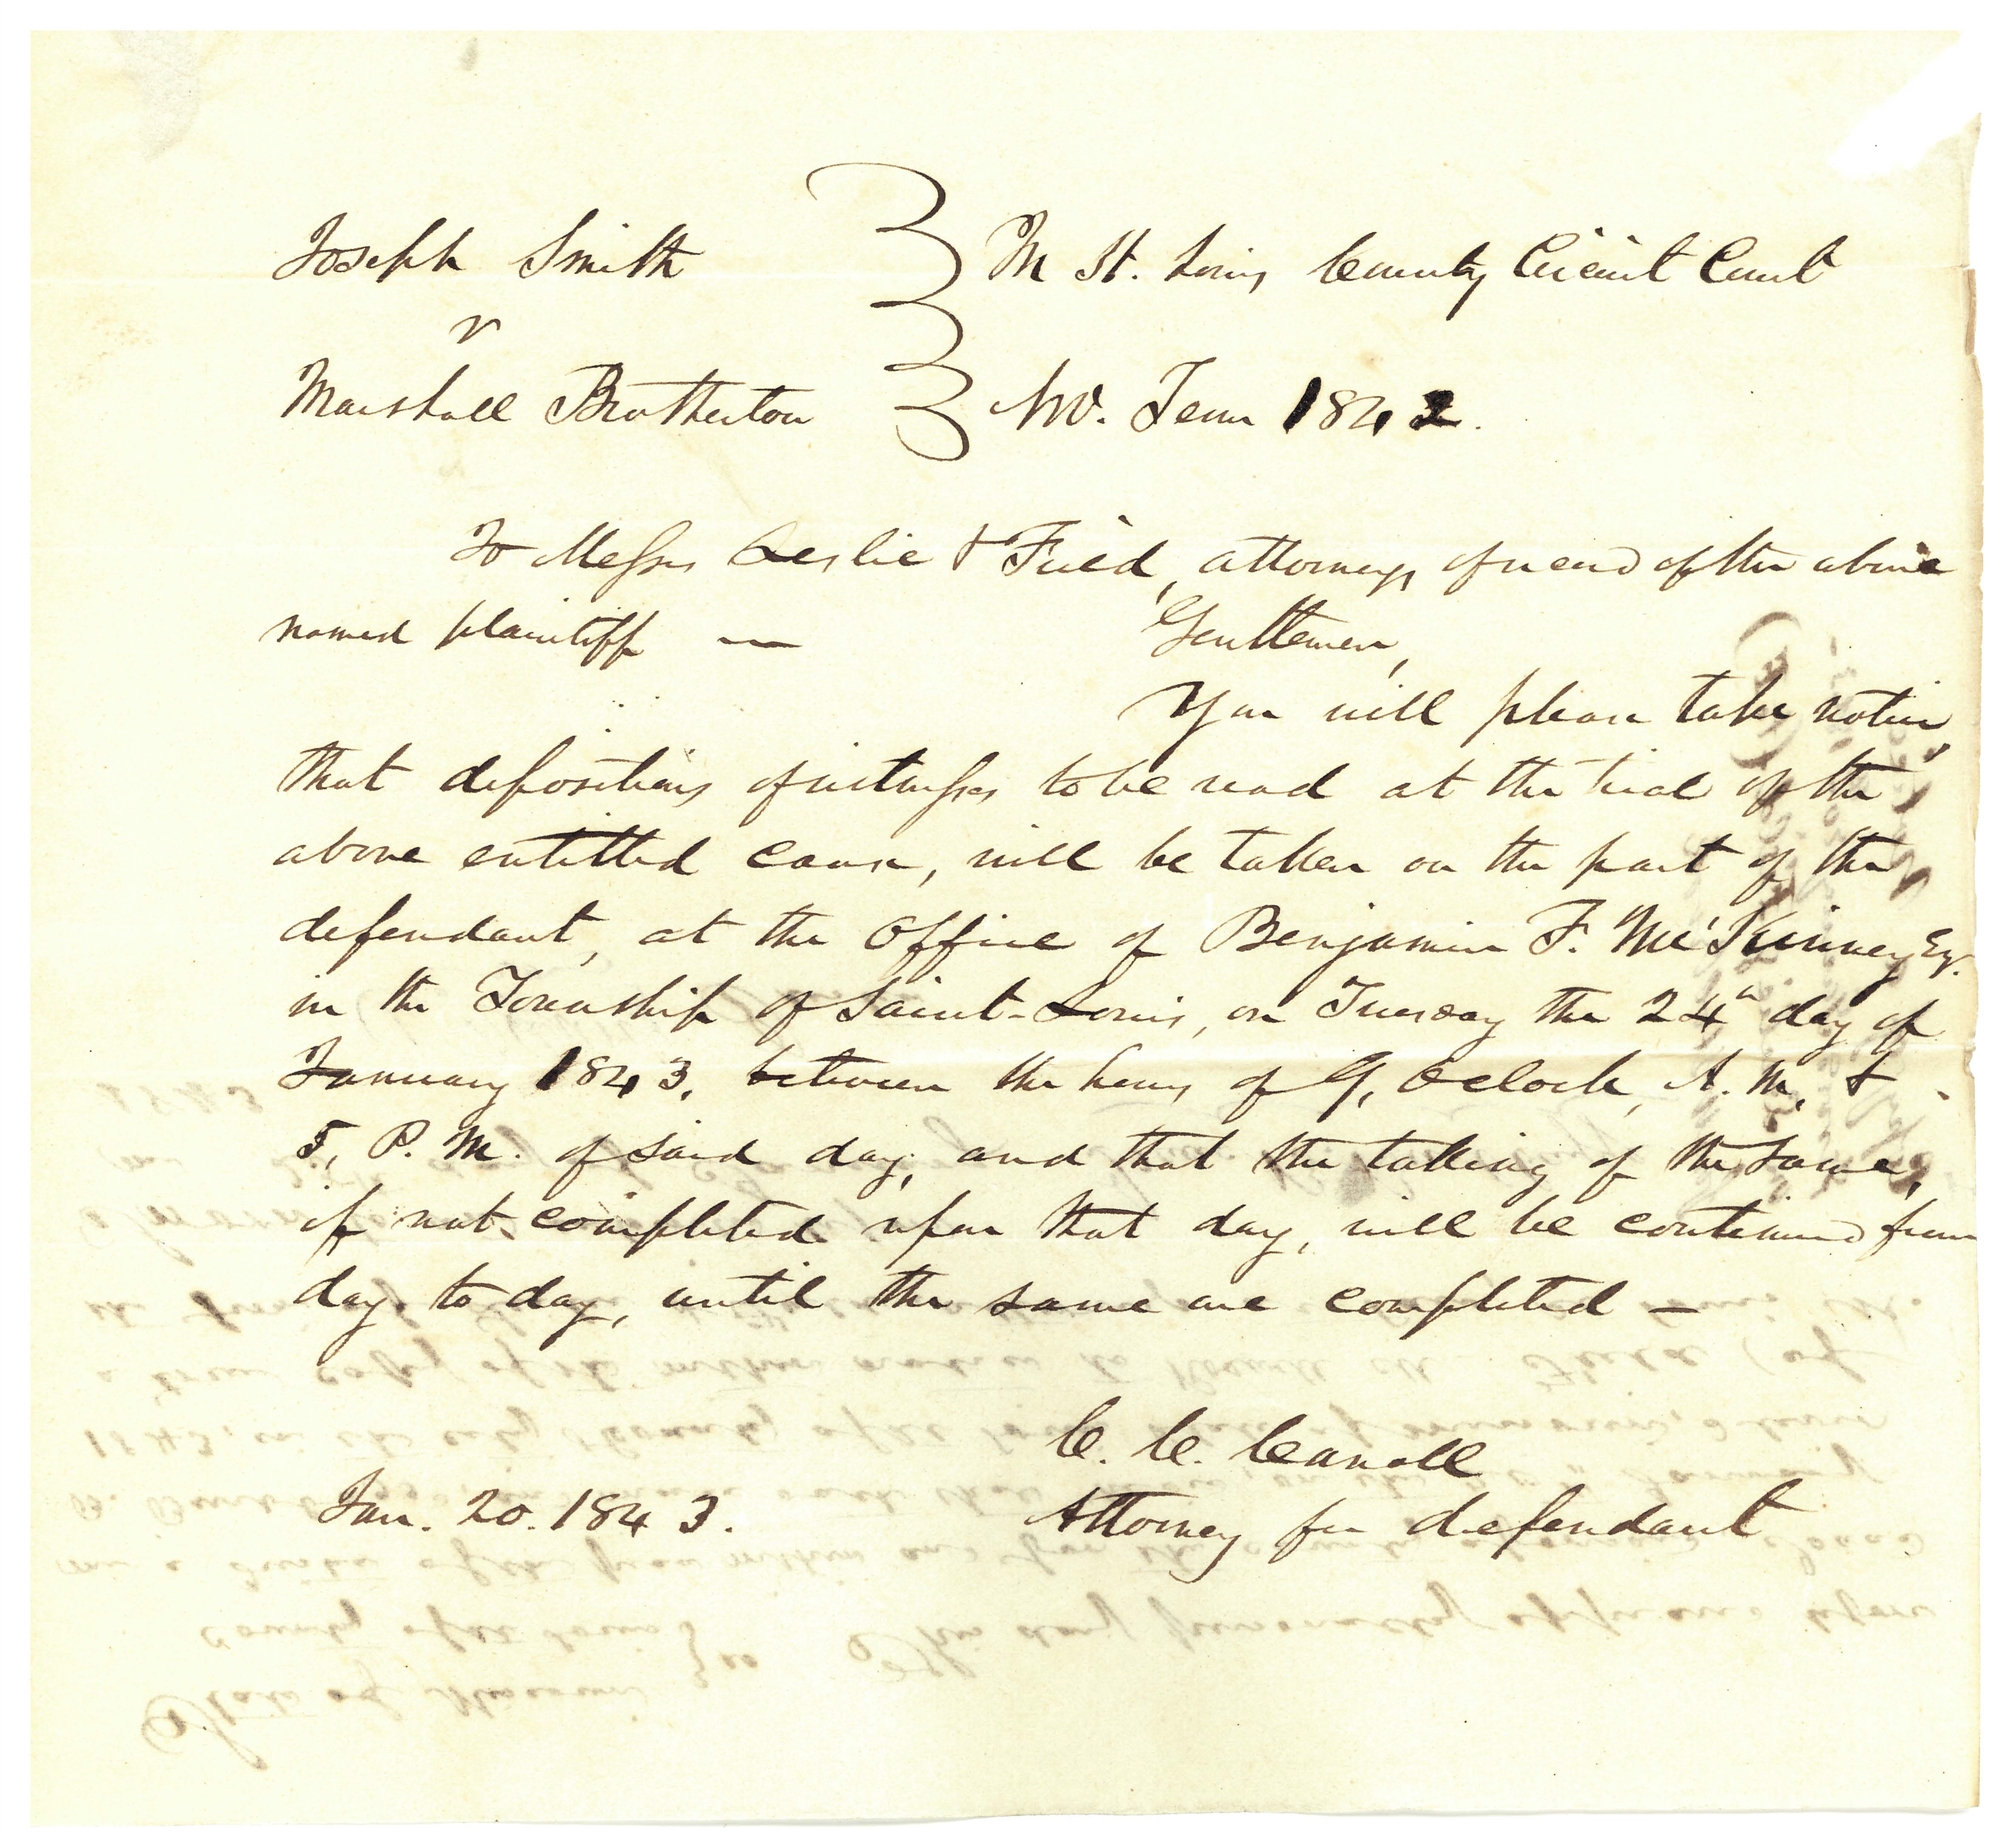 Joseph Smith
v
Marshall Brotherton
In St. Louis County Circuit Court
Nov. Term 1842.
To Messrs Leslie & Field, attorneys of record of the above
named plaintiff —
Gentlemen,
You will please take notice
that depositions of witnesses to be read at the trial of the
above entitled cause, will be taken on the part of the
defendant, at the Office of Benjamin F. McKinney Esq.
in the Township of Saint-Louis, on Tuesday the 24th day of
January 1843, between the hours of 9, Oclock, A. M, &
5, P. M. of said day, and that the taking of the same,
if not completed upon that day, will be continued from
day to day, until the same are completed —
C. C. Carroll
Attorney for defendant
Jan. 20. 1843.